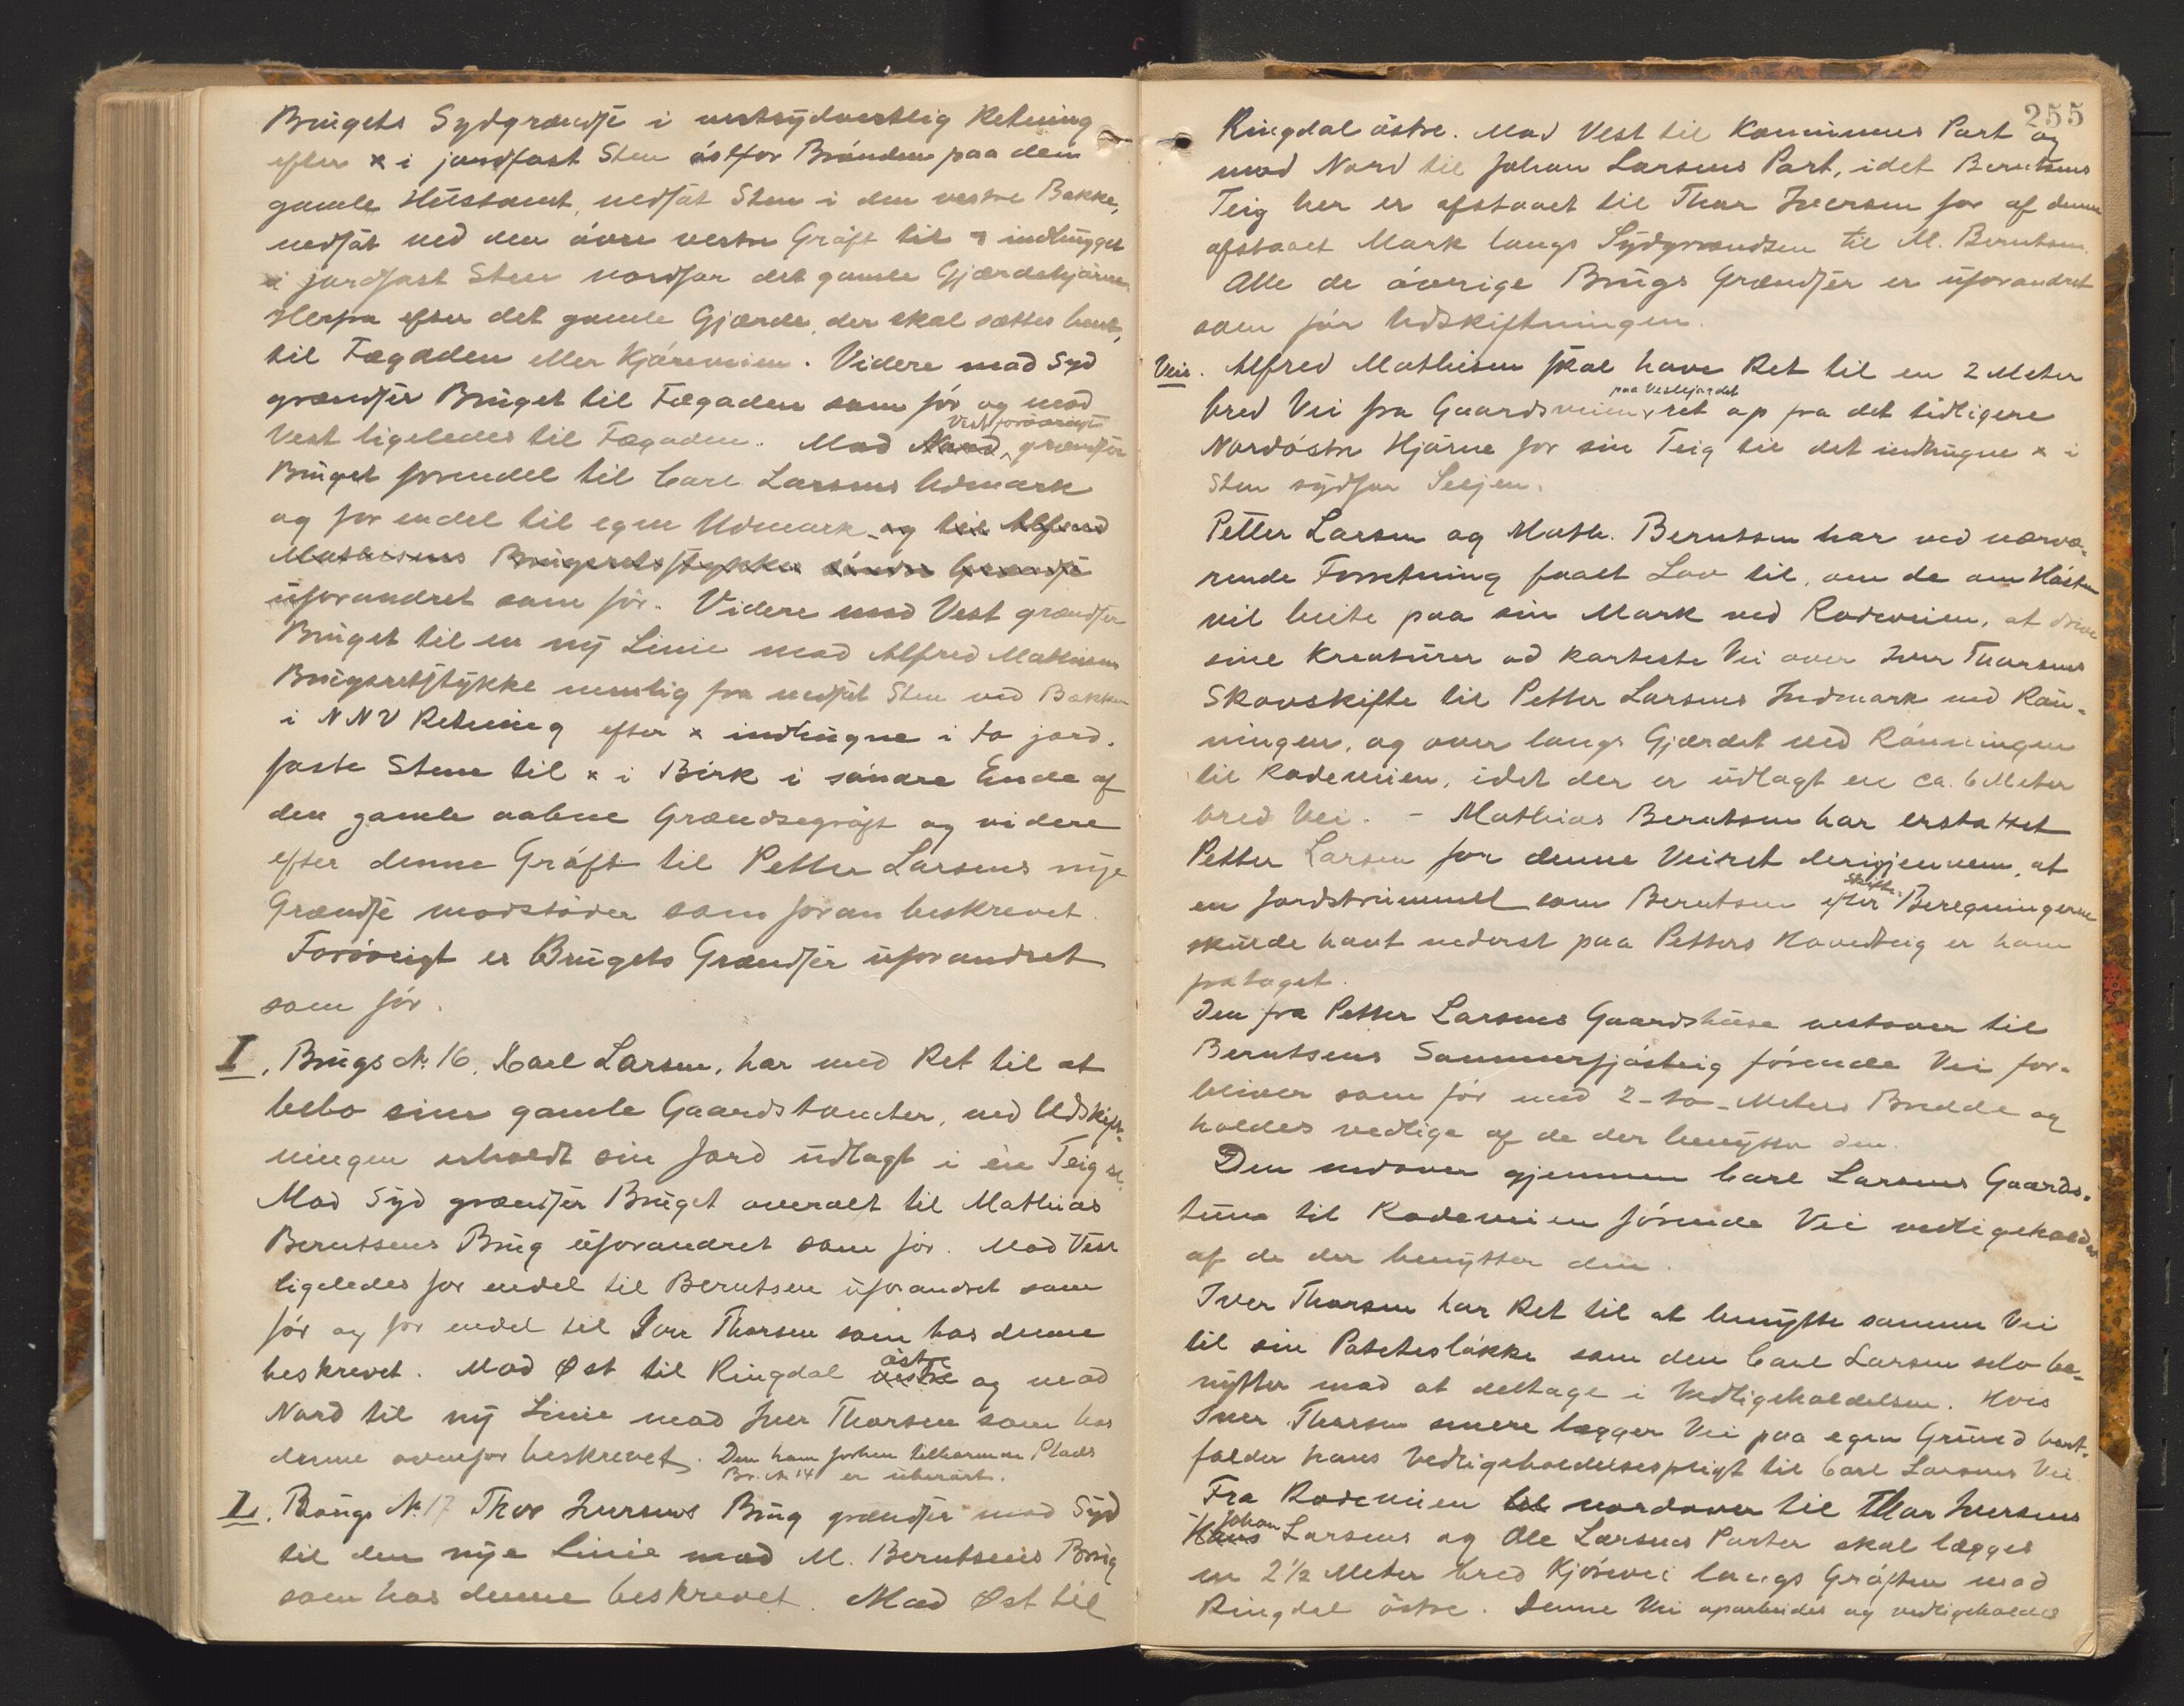 Brugets Sydgrændse i vestsydvestlig Retning
efter x i jordfast Sten østfor Brønden paa den
gamle Hustomt, nedsat Sten i den vestre Bakke,
nedsat ved den øvre vestre Grøft til x indhugget
i jordfast Sten nordfor det gamle Gjærdehjørne
Herfra efter det gamle Gjærde, der skal sættes bort,
til Fægaden eller Kjøreveien. Videre mod Syd
grændser Bruget til Fægaden som før og mod
Vest ligeledes til Fægaden. Mod Nord Vest forøvrigt grændser
Bruget forendel til Carl Larsens Udmark
og for endel til egen Udmark og til Alfred
Mathisens Brugsretsstykkes søndre Grændse
uforandret som før. Videre mod Vest grændser
Bruget til en ny Linie mod Alfred Mathisens
Brugsretstykke nemlig fra nedsat Sten ved Bækken
i NNV Retning efter x indhugne i to jord-
faste Stene til x i Birk i søndre Ende af
den gamle aabne Grændsegrøft og videre
efter denne Grøft til Petter Larsens nye
Grændse modstøder som foran beskrevet.
Forøvrigt er Brugets Grændser uforandret
som før.
I. Brugs № 16, Karl Larsen, har med Ret til at
bebo sine gamle Gaardstomter, ved Udskift-
ningen erholdt sin Jord udlagt i én Teig
Mod Syd grændser Bruget overalt til Mathias
Berntsens Brug uforandret som før. Mod Vest
ligeledes for endel til Berntsen uforandret som
før og for endel til Iver Thorsen som hos denne
beskrevet. Mod Øst til Ringdal vestre østre og mod
Nord til ny Linie mod Iver Thorsen som hos
denne ovenfor beskrevet. Den ham forhen tilhørende Plads
Br. № 14 er uberørt.
L. Brugs № 17 Thor Iversens Brug grændser mod Syd
til den nye Linie mod M. Berntsens Brug
som hos denne beskrevet. Mod Øst til
255
Ringdal østre. Mod Vest til Kommunens Part og
mod Nord til Johan Larsens Part, idet Berntsens
Teig her er afstaaet til Thor Iversen for af denne
afstaaet Mark langs Sydgrændsen til M. Berntsen.
Alle de øvrige Brugs Grændser er uforandret
som før Udskiftningen.
Veie. Alfred Mathisen skal have Ret til en 2 Meter
bred Vei fra Gaardsveien paa Vestlejordet ret op fra det tidligere
Nordøstre Hjørne for sin Teig til det indhugne x i
Sten sydfor Seljen.
Petter Larsen og Math. Berntsen har ved nærvæ-
rende Forretning faaet Lov til, om de om Høsten
vil beite paa sin Mark ved Rodeveien, at drive
sine Kreaturer ad korteste Vei over Iver Thorsens
Skovskifte til Petter Larsens Indmark ved Røn-
ningen, og over langs Gjærdet ved Rønningen
til Rodeveien, idet der er udlagt en ca. 6 Meter
bred Vei. - Mathias Berntsen har erstattet
Petter Larsen for denne Veiret derigjennem, at
en Jordstrimmel som Berntsen efter Skifte-Beregningerne
skulde havt nederst paa Petters Hovedteig er ham
frataget.
Den fra Petter Larsens Gaardshuse vestover til
Berntsens Sommerfjøsteig førende Vei for-
bliver som før med 2-to-Meters Bredde og
holdes vedlige af de der benytter den.
Den nedover gjennem Carl Larsens Gaards-
tune til Rodeveien førende Vei vedligeholdes
af de der benytter den.
Iver Thorsen har Ret til at benytte samme Vei
til sin Potetesløkke som den Carl Larsen selv be-
nytter mod at deltage i Vedligeholdelsen. Hvis
Iver Thorsen senere lægger Vei paa egen Grund bort-
falder hans Vedligeholdelsespligt til Carl Larsens Vei
Fra Rodeveien til nordover til Thor Iversens
Hans Johan Larsens og Ole Larsens Parter skal lægges
en 2 1/2 Meter bred Kjørevei langs Grøften mod
Ringdal østre. Denne Vei oparbeides og vedligeholdes